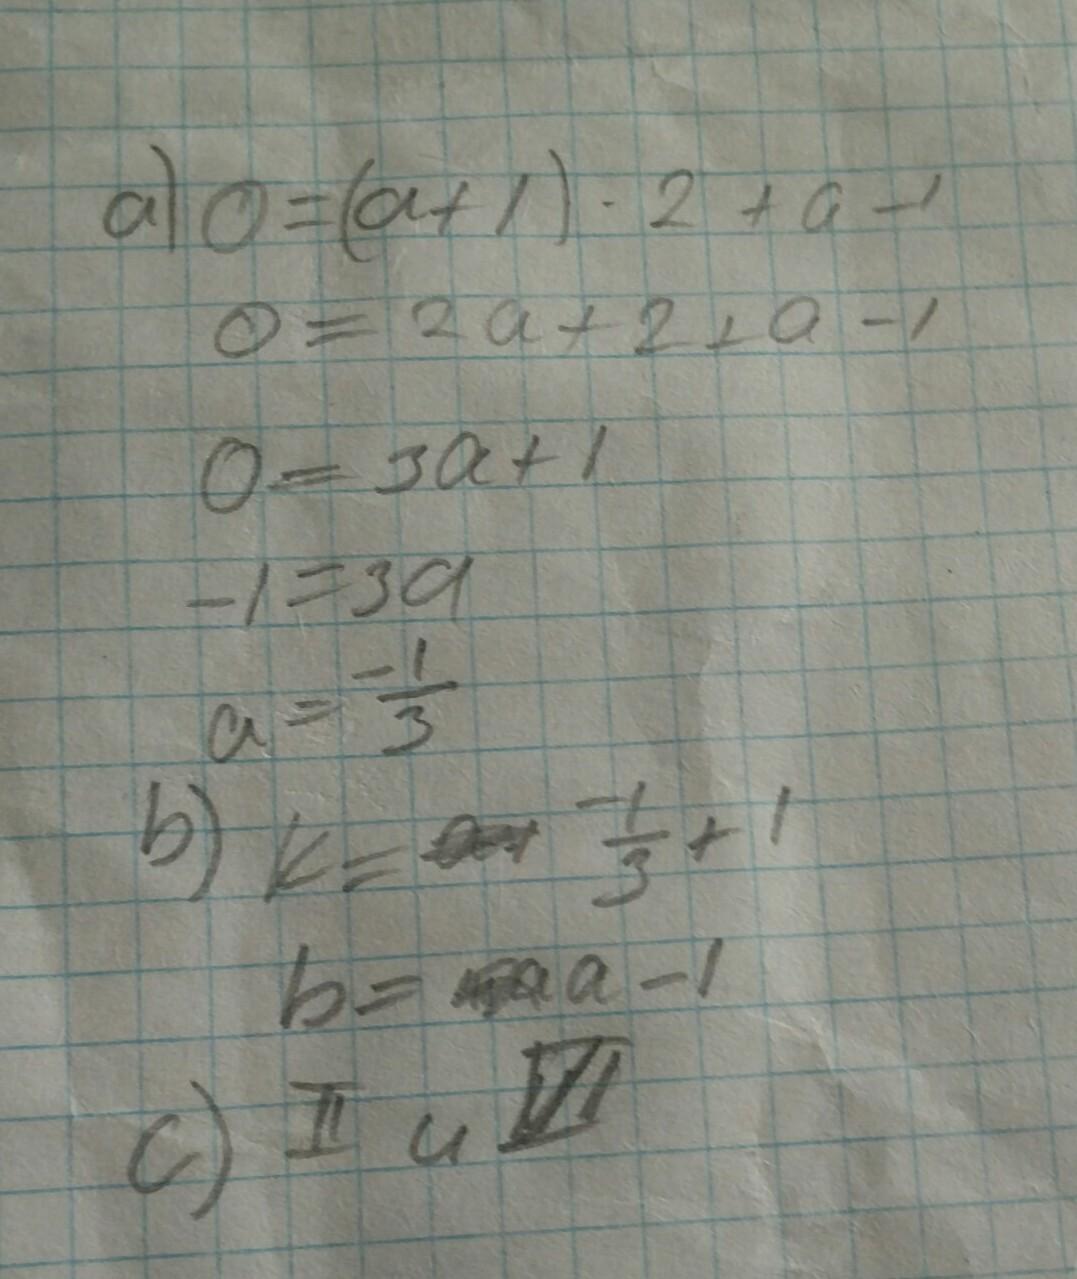 a) 0=(a+1)·2+a-1
0=2a+2+a-1
0=3a+1
-1=3a
a=-1/3
b) k= -1/3+1
b= a-1
c) II и VI